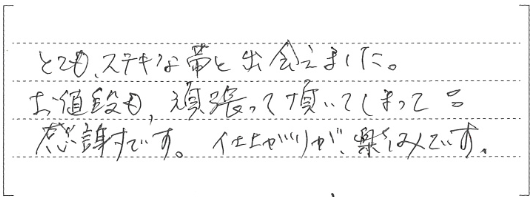 とても、ステキな帯と出会えました。
お値段も、頑張って頂いてしまって
感謝です。仕上がりが、楽しみです。